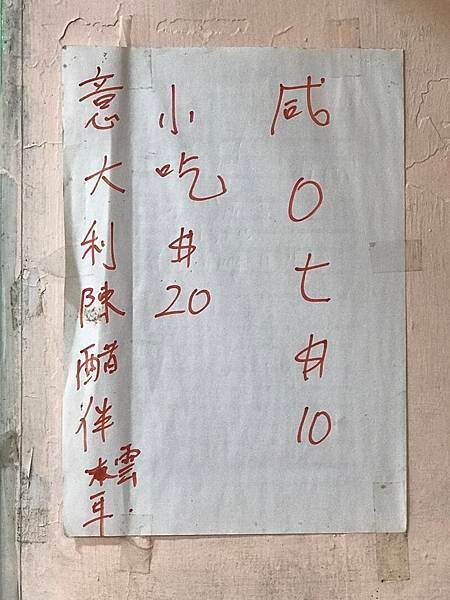 咸0七$10
小吃$20
意大利陳醋拌雲耳